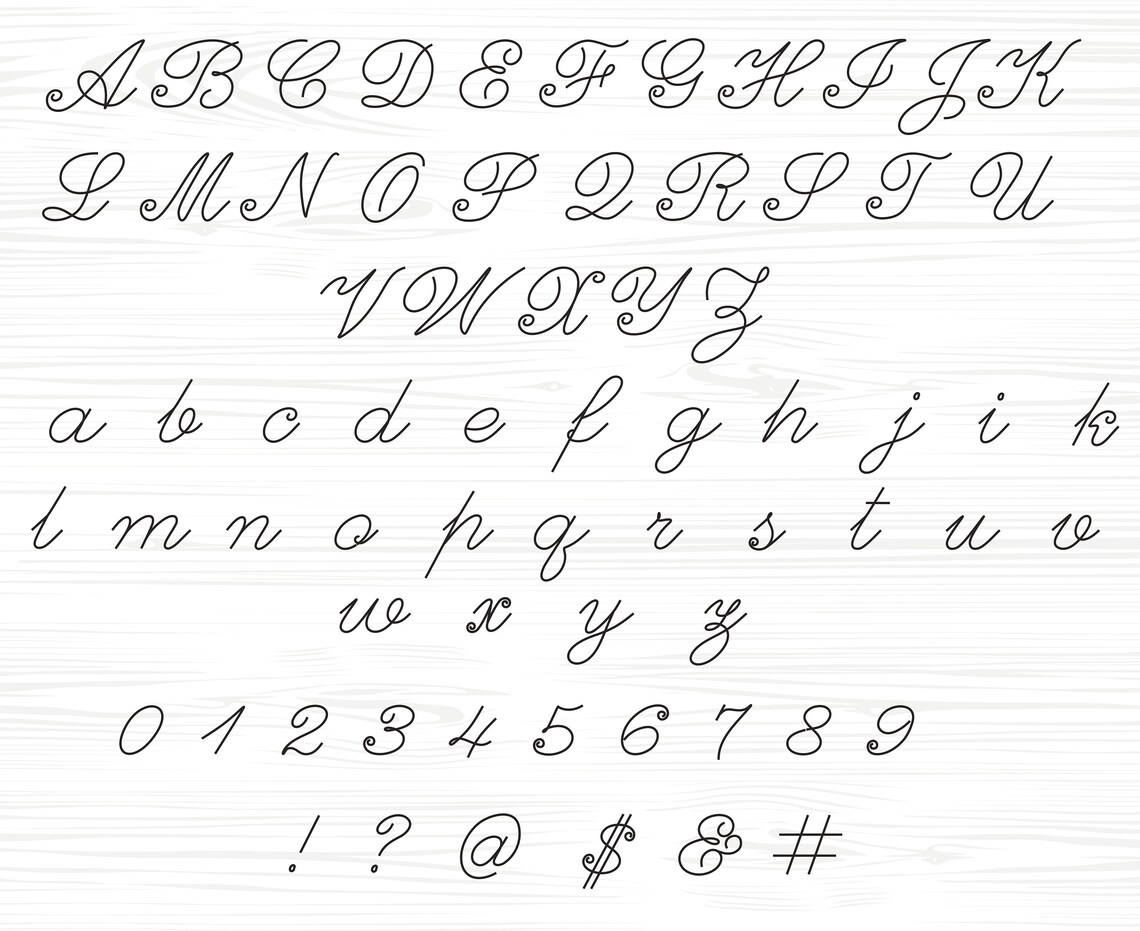 A B C D E F G H I J K
L M N O P Q R S T U
V W X Y Z
a b c d e f g h j i k
l m n o p q r s t u v
w x y z
0 1 2 3 4 5 6 7 8 9
! ? @ $ & #